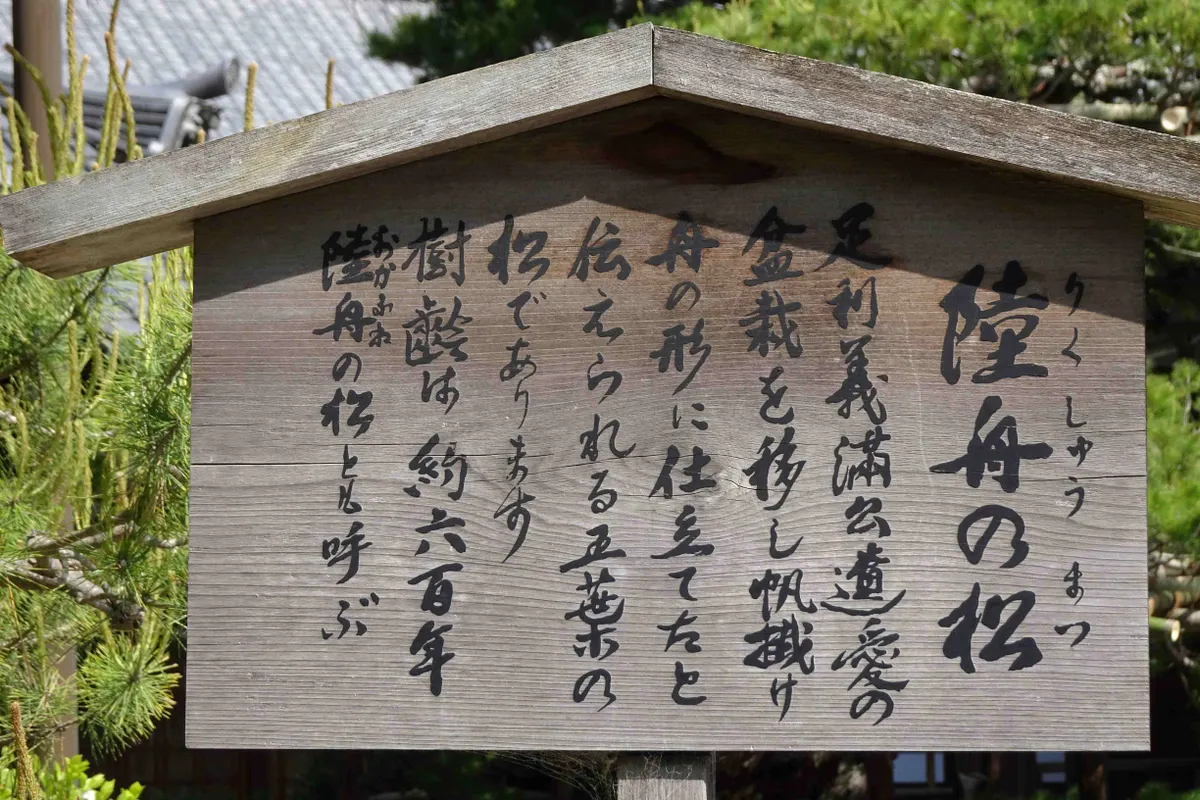 りくしゅう まつ
陸舟の松
足利義満公遺愛の
盆栽を移し帆掛け
舟の形に仕立てたと
伝えられる五葉の
松であります
樹齢は約六百年
おかふね
陸舟の松とも呼ぶ